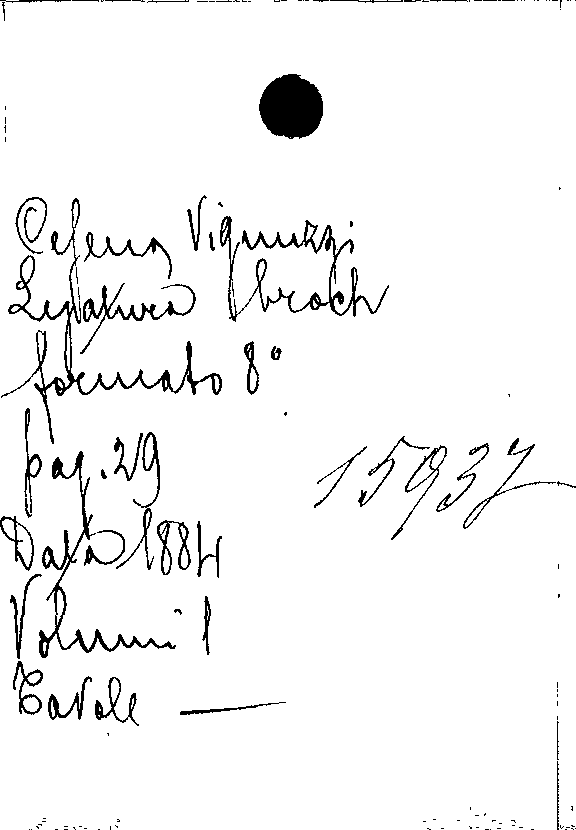 Cesena Vignuzzi
Legatura broch
formato 8°
pag. 29
15937
Data 1884
Volumi 1
Tavole —